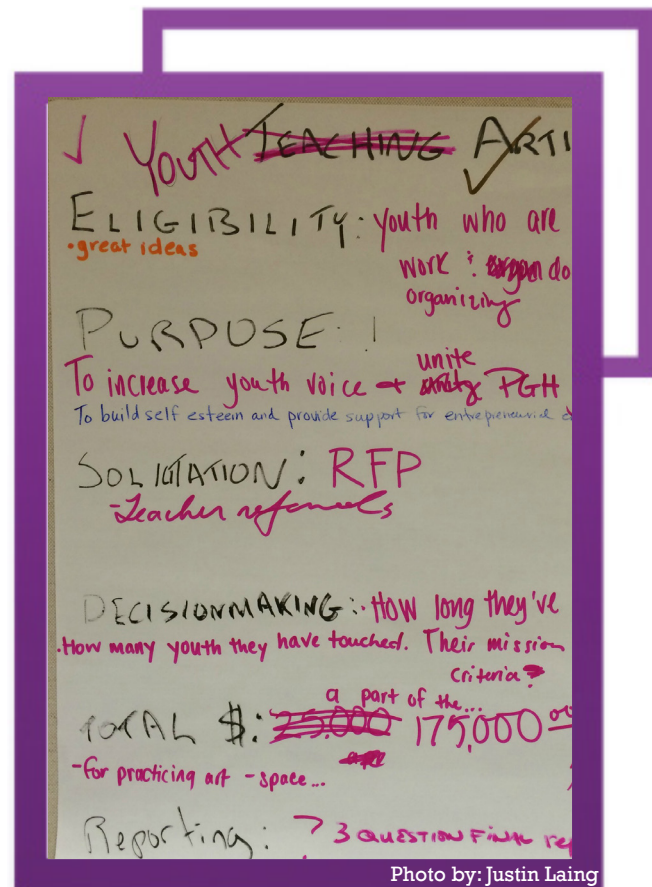 ✓ YOUTH TEACHING ARTI
ELIGIBILITY: youth who are
•great ideas
work : do
organizing
PURPOSE: !
unite
To increase youth voice + PGH
To build self esteem and provide support for entrepreneurial
SOLICITATION: RFP
-Teacher referrals
DECISIONMAKING: •How long they've
•How many youth they have touched. Their mission
criteria?
a part of the...
TOTAL $: 25,000 175,000 00
-for practicing art -space...
Reporting: 3 QUESTION FINAL re
Photo by: Justin Laing